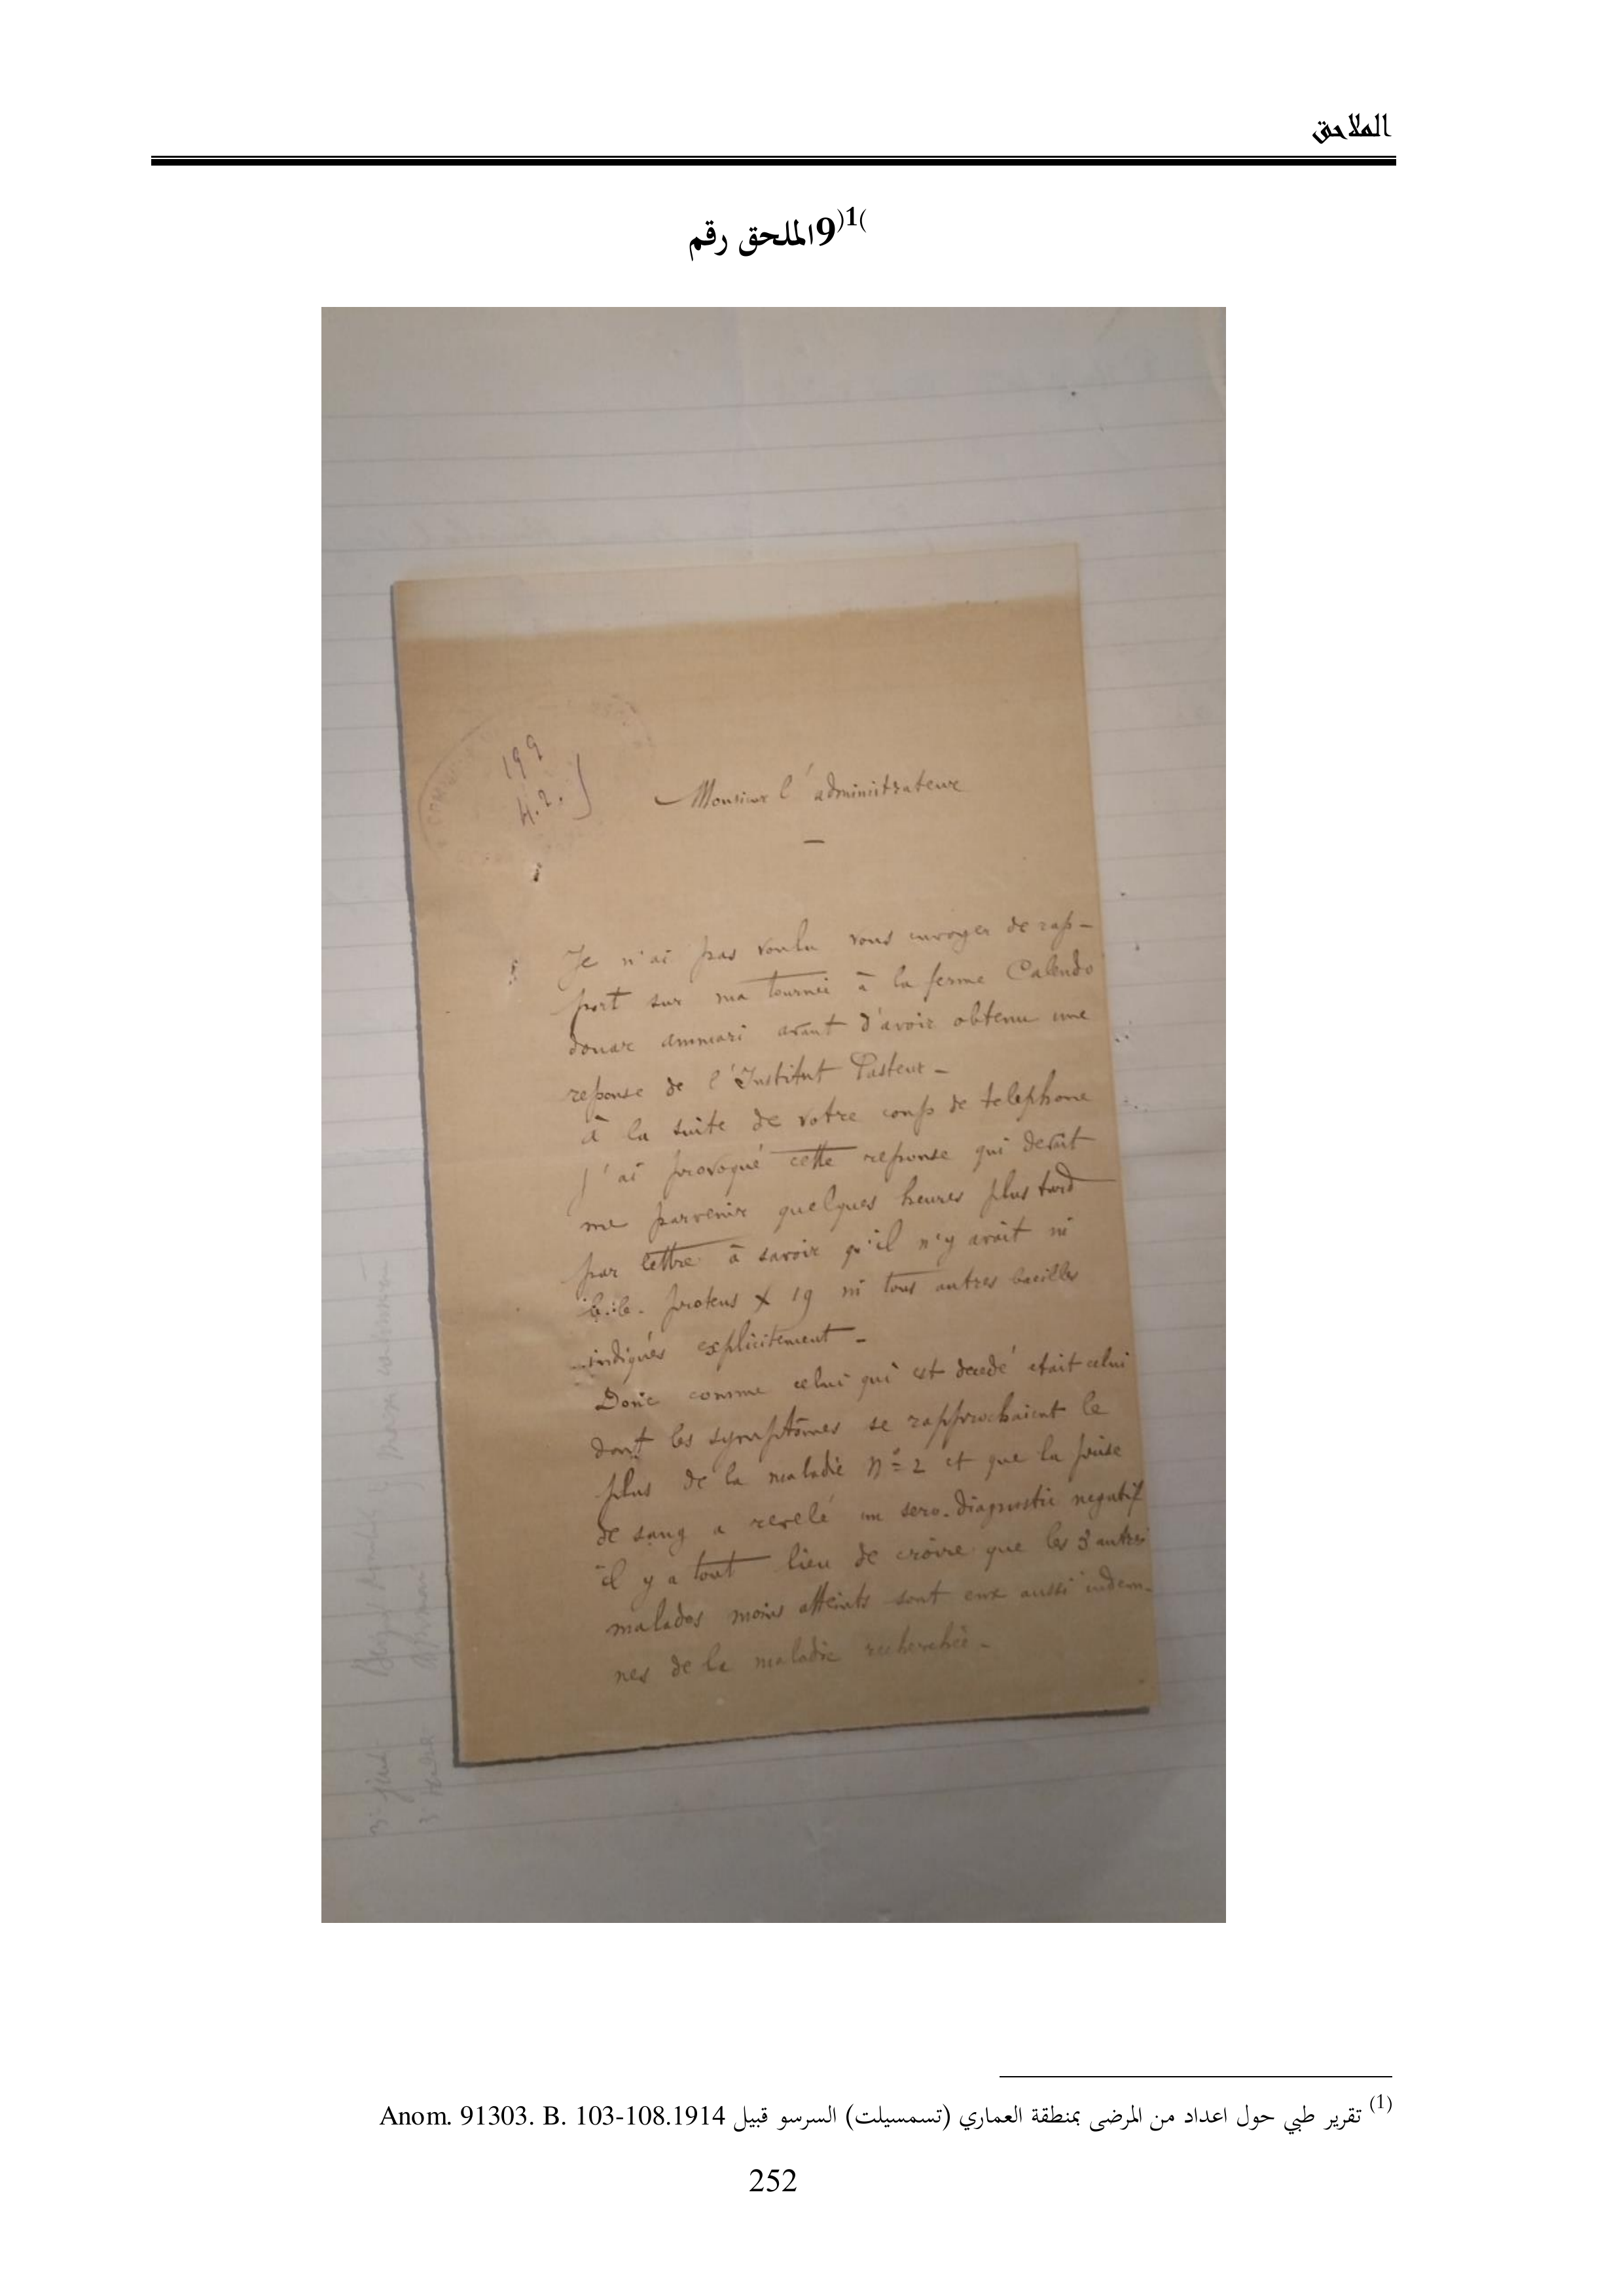 الملاحق
الملحق رقم 9(1)
199
4.2.
Monsieur l'administrateur
Je n'ai pas voulu vous envoyer de rap-
port sur ma tournée à la ferme Calendo
douar ammari avant d'avoir obtenu une
reponse de l'Institut Pasteur -
à la suite de votre coup de telephone
j'ai provoqué cette reponse qui devait
me parvenir quelques heures plus tard
par lettre à savoir qu'il n'y avait ni
proteus X 19 ni tous autres bacilles
indiqués explicitement -
Donc comme celui qui est decedé etait celui
dont les symptômes se rapprochaient le
plus de la maladie n° 2 et que la prise
de sang a revelé un sero-diagnostic negatif
il y a tout lieu de croire que les 3 autres
malades moins atteints sont eux aussi indem-
nes de la maladie recherchée -
(1) تقرير طبي حول اعداد من المرضى بمنطقة العماري (تسمسيلت) السرسو قبيل Anom. 91303. B. 103-108.1914
252